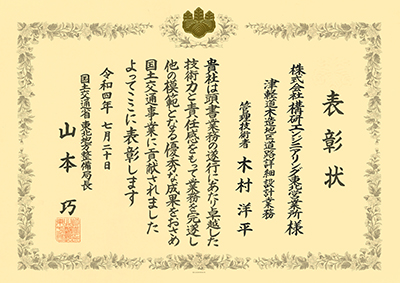 表彰状
株式会社構研エンジニアリング東北営業所 様
津軽道木造地区道路詳細設計業務
管理技術者 木村洋平
貴社は頭書業務の遂行にあたり卓越した
技術力と責任感をもって業務を完遂し
他の模範となる優秀な成果をおさめ
国土交通事業に貢献されました
よってここに表彰します
令和四年 七月二十日
国土交通省東北地方整備局長
山本 巧